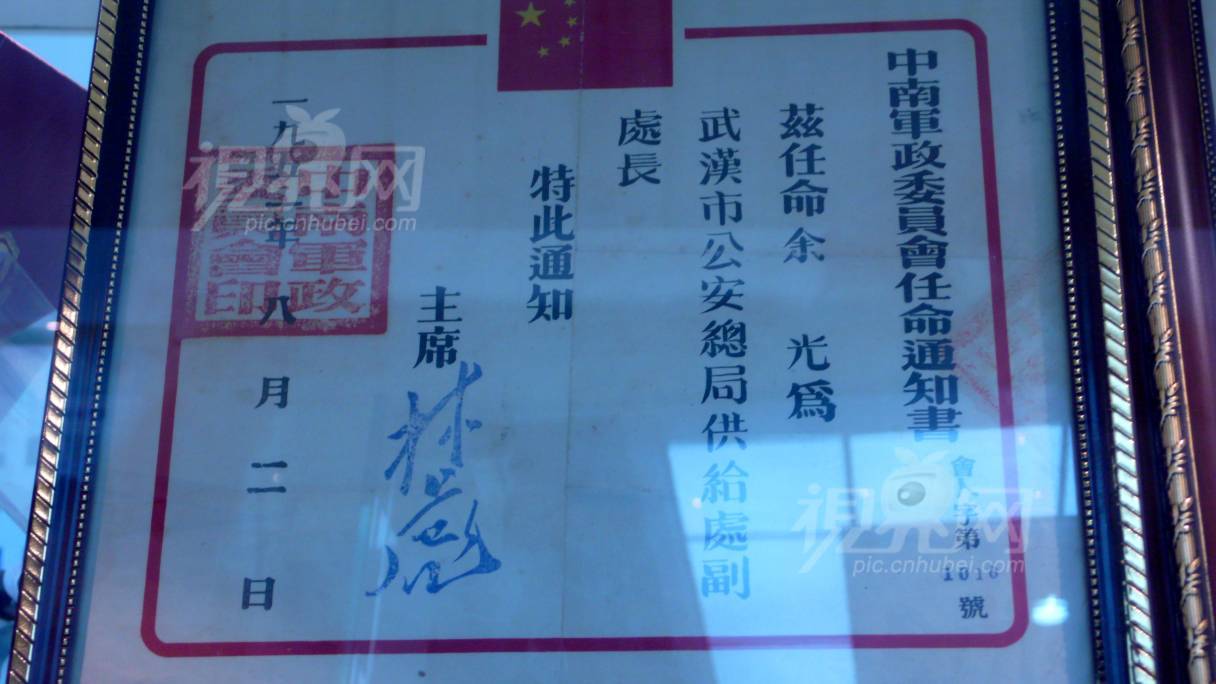 中南軍政委員會任命通知書
會人字第1016號
茲任命余 光爲
武漢市公安總局供給處副
處長
特此通知
主席
林彪
一九五二年八月二日
軍政
會印
視界网
pic.cnhubei.com
視界网
pic.cnhubei.com